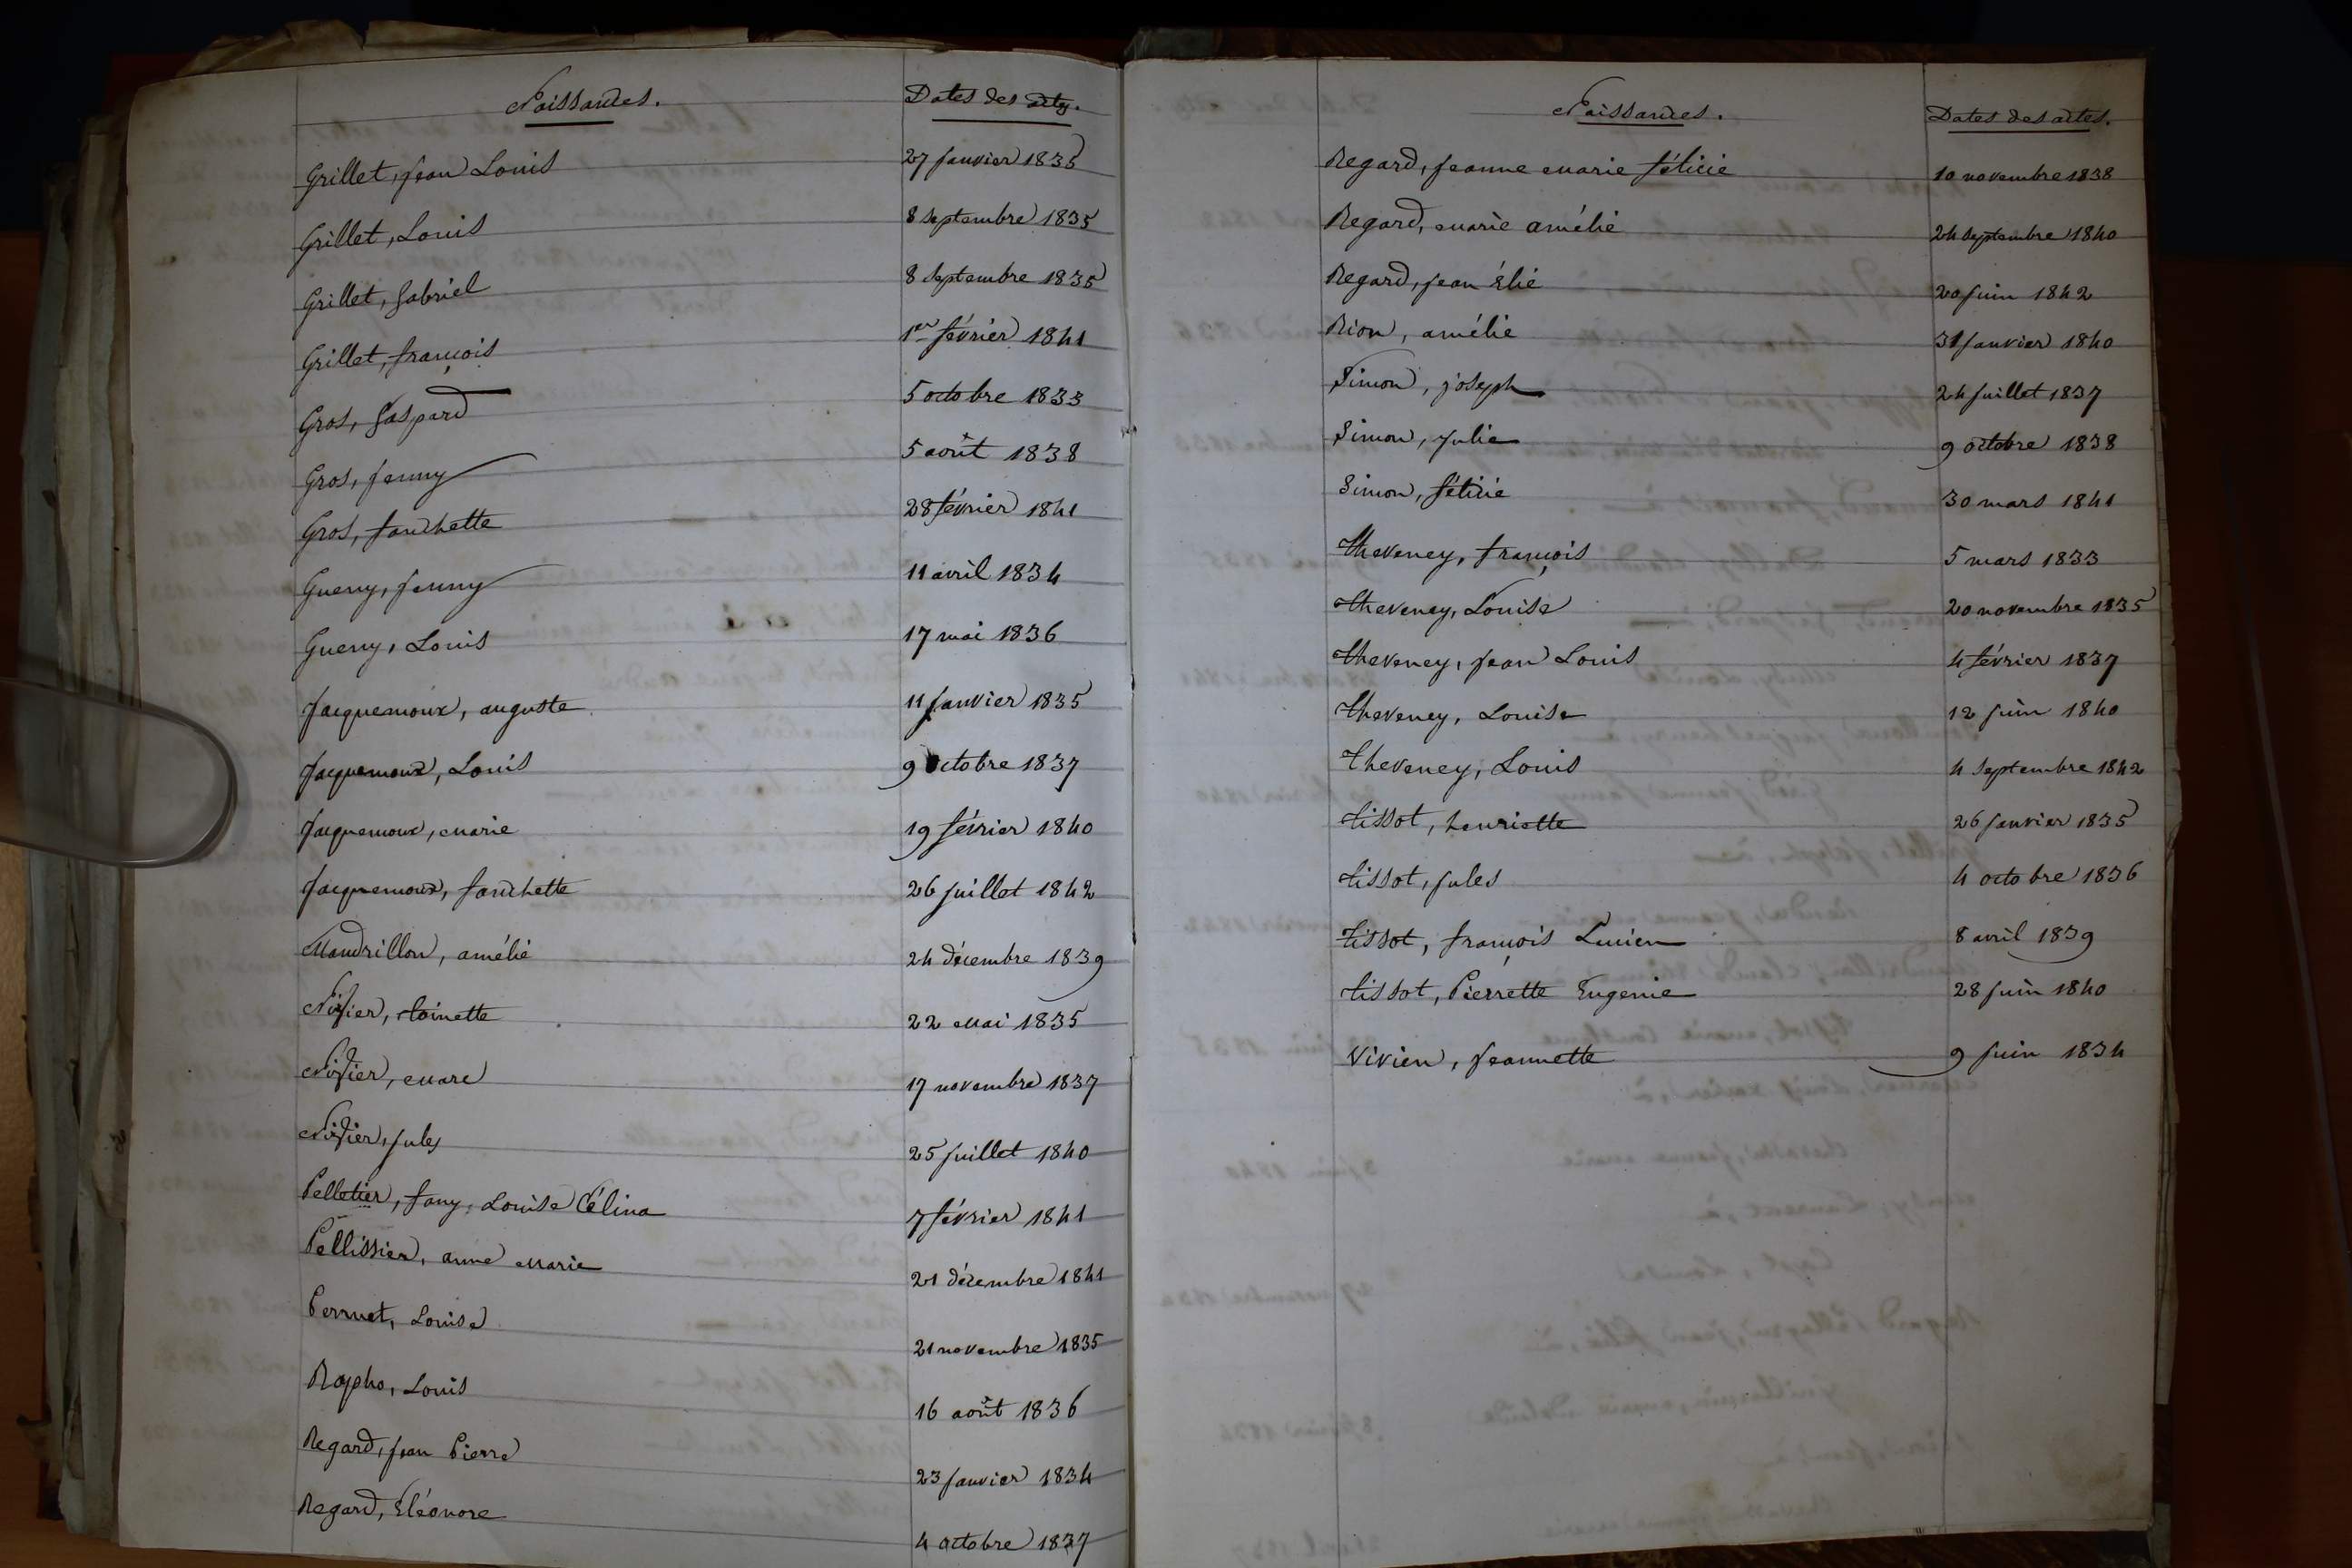 Naissances. Dates des actes.
Grillet, Jean Louis 27 janvier 1835
Grillet, Louis 8 septembre 1835
Grillet, Gabriel 8 septembre 1835
Grillet, françois 1er février 1841
Gros, Gaspard 5 octobre 1833
Gros, fenny 5 août 1838
Gros, fanchette 28 février 1841
Gueny, fenny 11 avril 1834
Gueny, Louis 17 mai 1836
Jacquemoux, auguste 11 janvier 1835
Jacquemoux, Louis 9 octobre 1837
Jacquemoux, marie 19 février 1840
Jacquemoux, fanchette 26 juillet 1842
Mandrillon, amélie 24 décembre 1839
Nizier, toinette 22 mai 1835
Nizier, marc 17 novembre 1837
Nizier, jules 25 juillet 1840
Pelletier, fany, Louise Célina 7 février 1841
Pellissier, anne marie 21 décembre 1841
Pernet, Louise 21 novembre 1835
Rapho, Louis 16 août 1836
Regard, jean Pierre 23 janvier 1834
Regard, Eléonore 4 octobre 1837
Naissances. Dates des actes.
Regard, jeanne marie félicie 10 novembre 1838
Regard, marie amélie 24 septembre 1840
Regard, jean Élie 20 juin 1842
Rion, amélie 31 janvier 1840
Simon, joseph 24 juillet 1837
Simon, Julie 9 octobre 1838
Simon, félicie 30 mars 1841
Theveney, françois 5 mars 1833
Theveney, Louise 20 novembre 1835
Theveney, jean Louis 4 février 1837
Theveney, Louise 12 juin 1840
Theveney, Louis 4 septembre 1842
tissot, henriette 26 janvier 1835
tissot, jules 4 octobre 1836
tissot, françois Lucien 8 avril 1839
tissot, Pierrette Eugenie 28 juin 1840
Vivien, jeannette 9 juin 1834